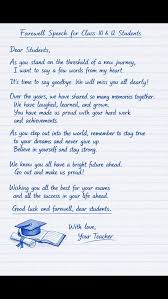 Farewell Speech for Class 10 & 12 Students
Dear Students,
As you stand on the threshold of a new journey,
I want to say a few words from my heart.
It's time to say goodbye. We will miss you all dearly!
Over the years, we have shared so many memories together.
We have laughed, learned, and grown.
You have made us proud with your hard work
and achievements.
As you step out into the world, remember to stay true
to your dreams and never give up.
Believe in yourself and stay strong.
We know you all have a bright future ahead.
Go out and make us proud!
Wishing you all the best for your exams
and all the success in your life ahead.
Good luck and farewell, dear students.
With love,
Your Teacher